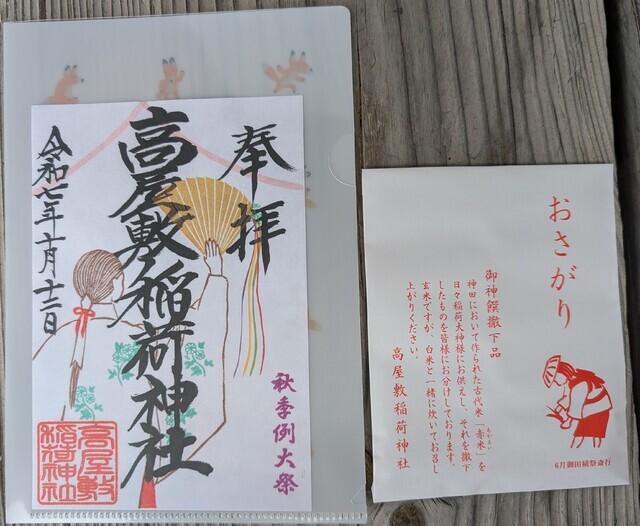 奉拝
高屋敷稲荷神社
令和七年十月十二日
秋季例大祭
高屋敷
稲荷神社
おさがり
御神饌撤下品
神田において作られた古代米「赤米」を
日々稲荷大神様にお供えし、それを撤下
したものを皆様にお分けしております。
玄米ですが、白米と一緒に炊いてお召し
上がりください。
高屋敷稲荷神社
6月御田植祭斎行